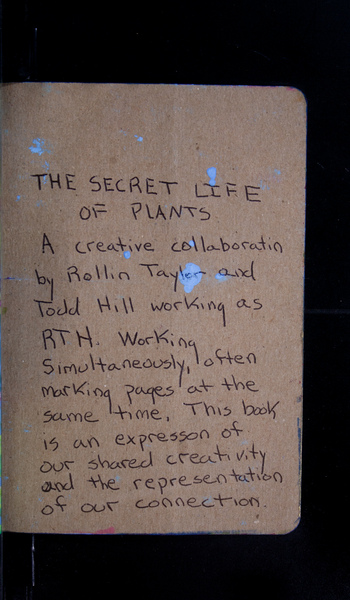 THE SECRET LIFE
OF PLANTS
A creative collaboratin
by Rollin Taylor and
Todd Hill working as
RTH. Working
Simultaneously, often
marking pages at the
same time. This book
is an expresson of
our shared creativity
and the representation
of our connection.